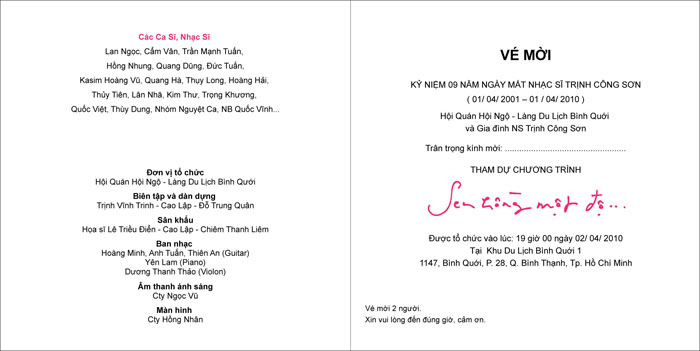 Các Ca Sĩ, Nhạc Sĩ
Lan Ngọc, Cẩm Vân, Trần Mạnh Tuấn,
Hồng Nhung, Quang Dũng, Đức Tuấn,
Kasim Hoàng Vũ, Quang Hà, Thụy Long, Hoàng Hải,
Thủy Tiên, Lân Nhã, Kim Thư, Trọng Khương,
Quốc Việt, Thùy Dung, Nhóm Nguyệt Ca, NB Quốc Vĩnh...
Đơn vị tổ chức
Hội Quán Hội Ngộ - Làng Du Lịch Bình Quới
Biên tập và dàn dựng
Trịnh Vĩnh Trinh - Cao Lập - Đỗ Trung Quân
Sân khấu
Họa sĩ Lê Triều Điển - Cao Lập - Chiêm Thanh Liêm
Ban nhạc
Hoàng Minh, Anh Tuấn, Thiên An (Guitar)
Yên Lam (Piano)
Dương Thanh Thảo (Violon)
Âm thanh ánh sáng
Cty Ngọc Vũ
Màn hình
Cty Hồng Nhân
VÉ MỜI
KỶ NIỆM 09 NĂM NGÀY MẤT NHẠC SĨ TRỊNH CÔNG SƠN
( 01/ 04/ 2001 – 01 / 04/ 2010 )
Hội Quán Hội Ngộ - Làng Du Lịch Bình Quới
và Gia đình NS Trịnh Công Sơn
Trân trọng kính mời: ..................................................
THAM DỰ CHƯƠNG TRÌNH
Sen hồng một độ...
Được tổ chức vào lúc: 19 giờ 00 ngày 02/ 04/ 2010
Tại Khu Du Lịch Bình Quới 1
1147, Bình Quới, P. 28, Q. Bình Thạnh, Tp. Hồ Chí Minh
Vé mời 2 người.
Xin vui lòng đến đúng giờ, cảm ơn.